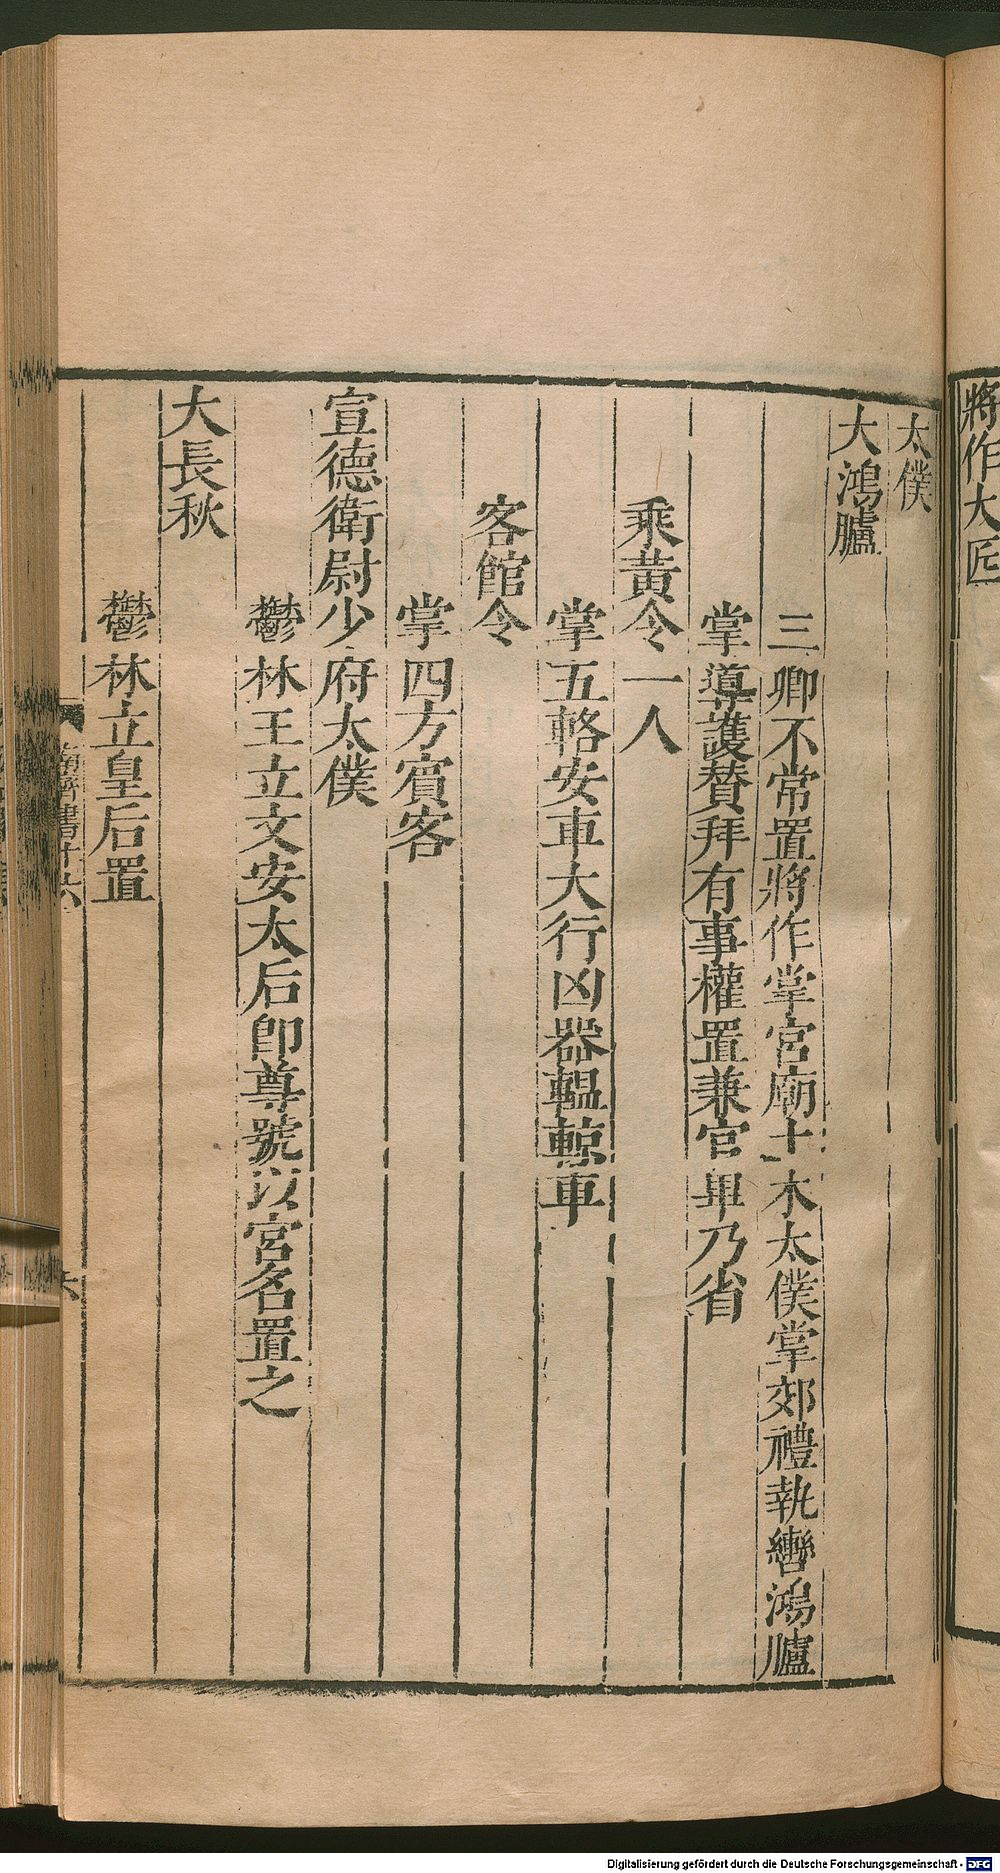 將作大匠
太僕
大鴻臚
三卿不常置將作掌宮廟土木太僕掌郊禮執轡鴻臚
掌導護贊拜有事權置兼官畢乃省
乘黃令一人
掌五輅安車大行凶器轀輬車
客館令
掌四方賓客
宣德衛尉少府太僕
鬱林王立文安太后卽尊號以宮名置之
大長秋
鬱林立皇后置
南齊書十六
六
Digitalisierung gefördert durch die Deutsche Forschungsgemeinschaft - DFG